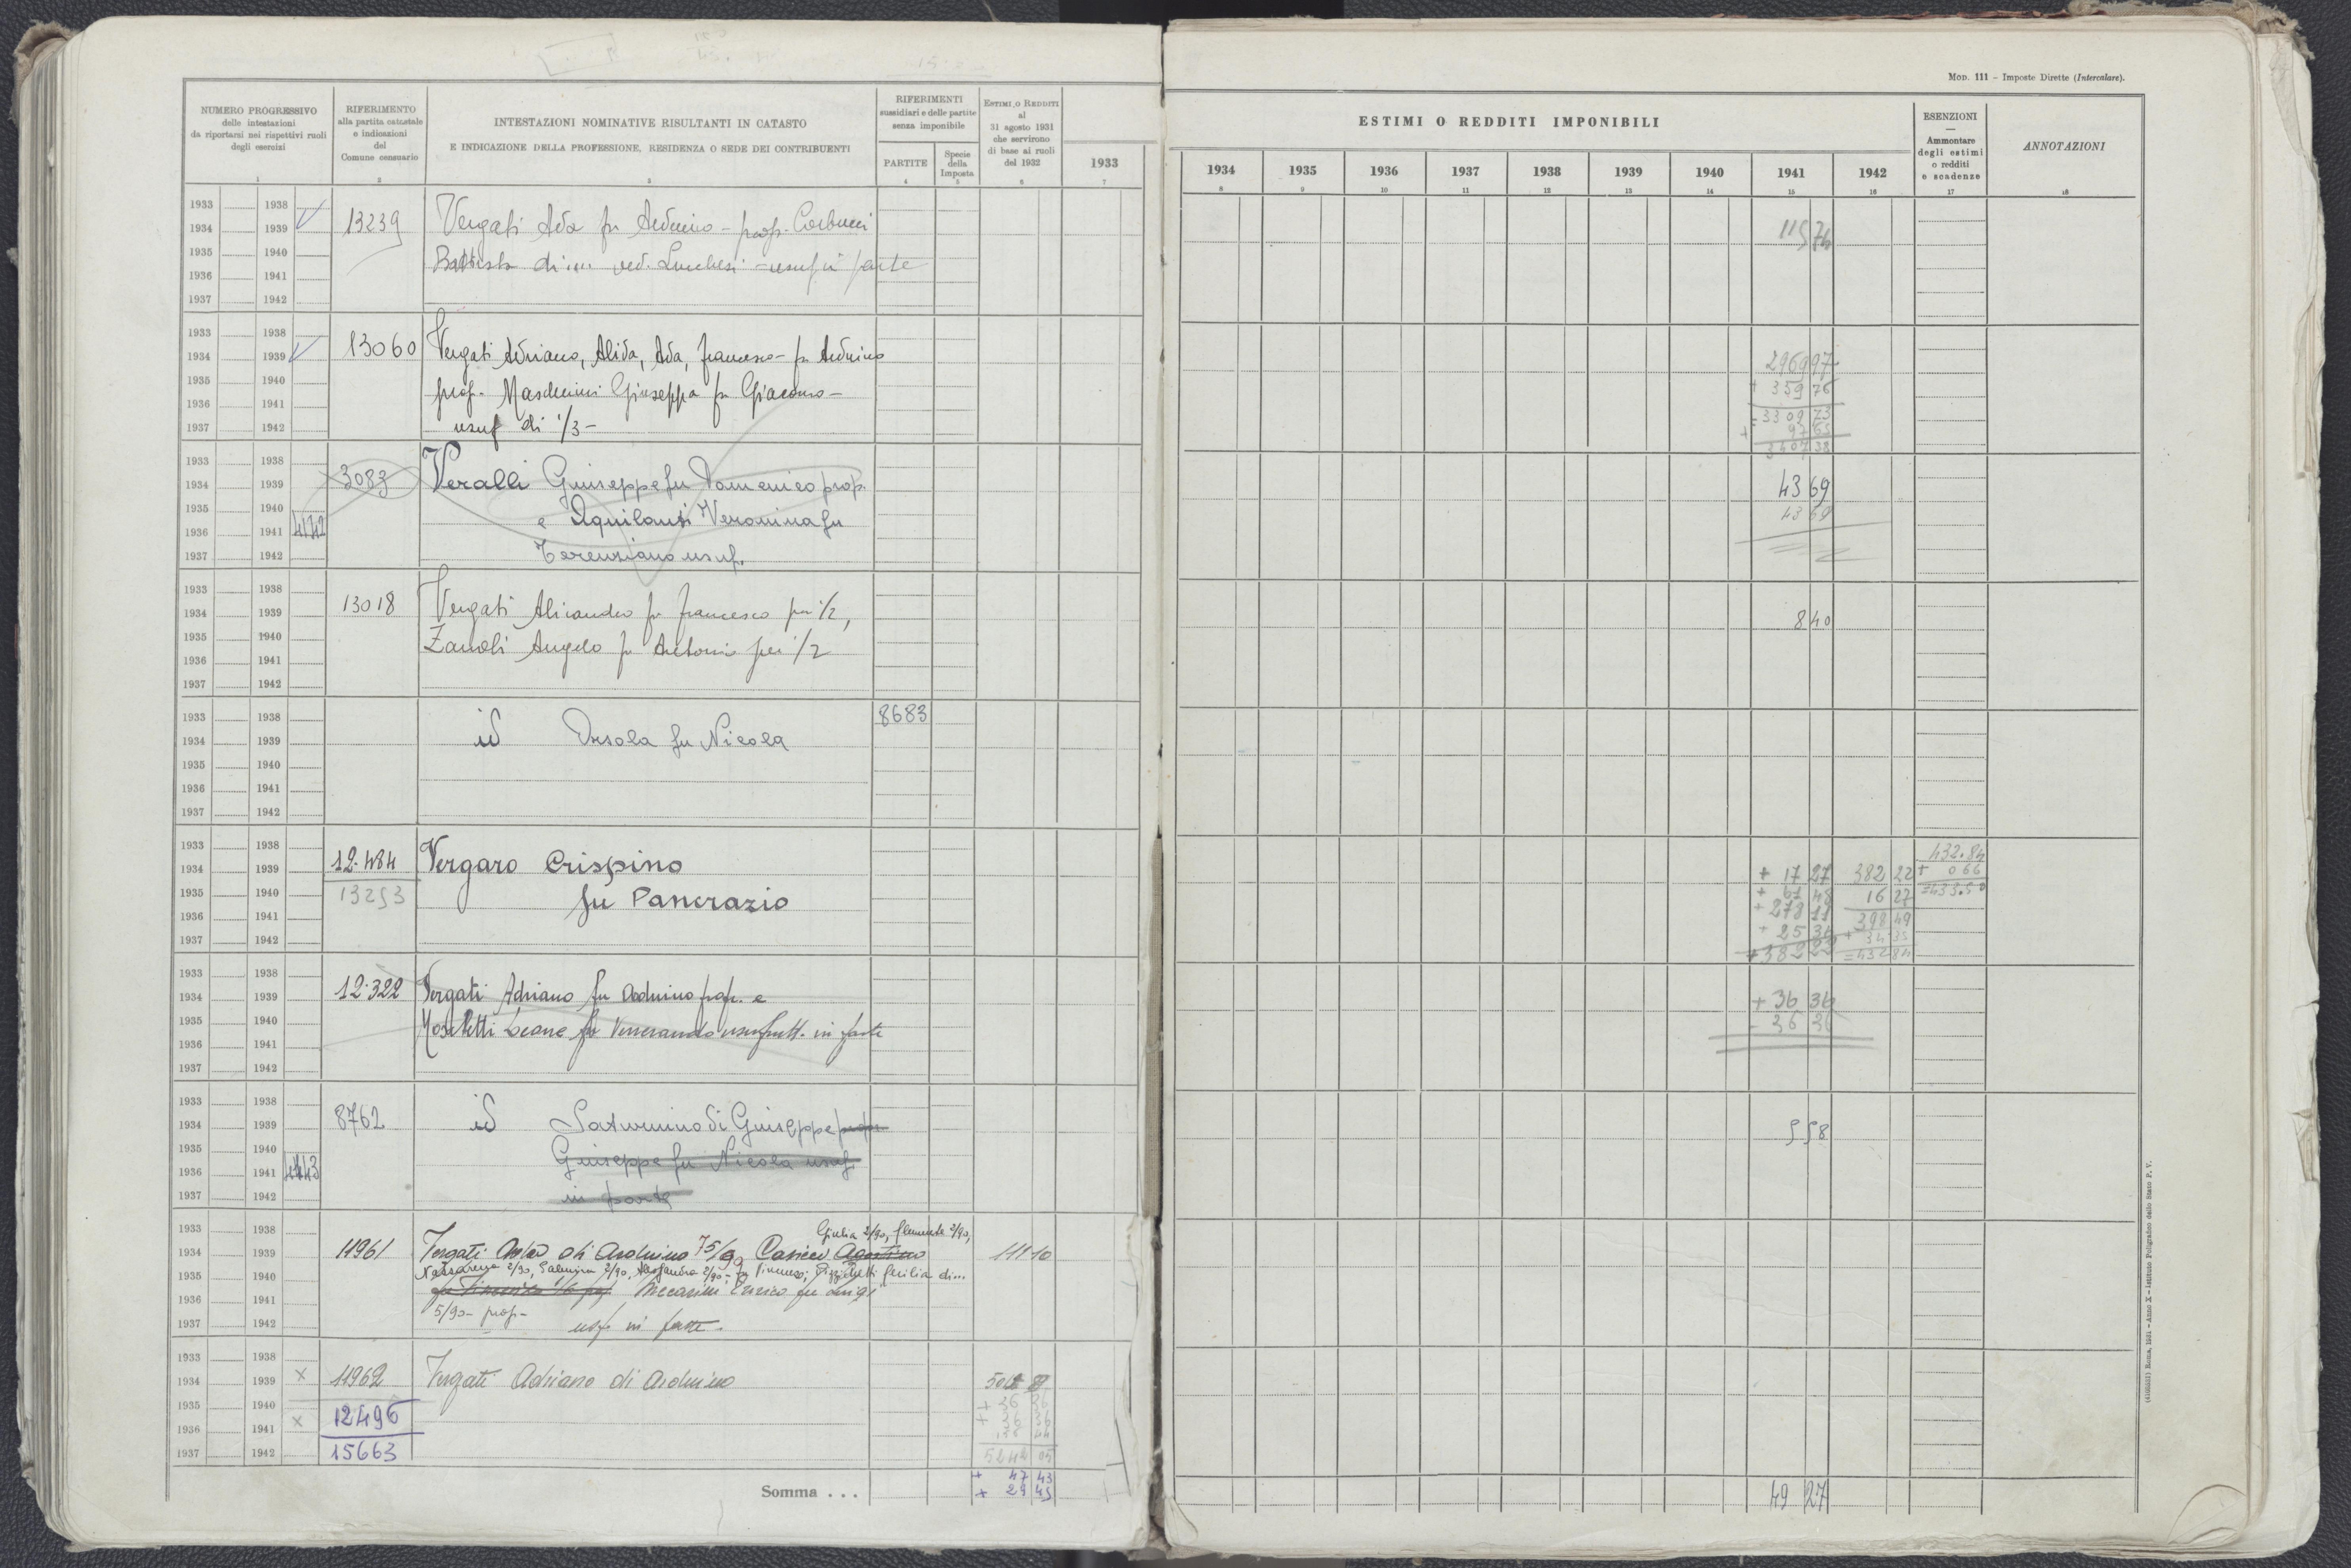 Mod. 111 - Imposte Dirette (Intercalare).
NUMERO PROGRESSIVO delle intestazioni da riportarsi nei rispettivi ruoli degli esercizi
RIFERIMENTO alla partita catastale e indicazioni del Comune censuario
INTESTAZIONI NOMINATIVE RISULTANTI IN CATASTO
E INDICAZIONE DELLA PROFESSIONE, RESIDENZA O SEDE DEI CONTRIBUENTI
RIFERIMENTI sussidiari e delle partite senza imponibile
PARTITE
Specie della Imposta
ESTIMI O REDDITI al 31 agosto 1931 che servirono di base ai ruoli del 1932
1933
ESTIMI O REDDITI IMPONIBILI
1934 1935 1936 1937 1938 1939 1940 1941 1942
ESENZIONI — Ammontare degli estimi o redditi e scadenze
ANNOTAZIONI
1 2 3 4 5 6 7 8 9 10 11 12 13 14 15 16 17 18
1933 1938
1934 1939 13239 Vergati Ada fu Arduino - prop. Carbucci
1935 1940 Battista di... ved. Lucchesi - usuf. in parte
1936 1941
1937 1942
115 74
1933 1938
1934 1939 13060 Vergati Adriano, Alida, Ada, Francesco - fu Arduino
1935 1940 prop. Giuseppa fu Giacomo -
1936 1941
1937 1942 usuf di 1/3 -
2969 97
+ 359 76
= 3309 73
+ 97 65
3407 38
1933 1938
1934 1939 3083 Veralli Giuseppe fu Domenico prop.
1935 1940 e Aquilanti Veronica fu
1936 1941 4142
1937 1942 Terenziano usuf.
43 69
43 69
1933 1938
1934 1939 13018 Vergati Alicandro fu Francesco per 1/2,
1935 1940 Zamoli Angelo fu Antonio per 1/2
1936 1941
1937 1942
8 40
1933 1938 8683
1934 1939 id Orsola fu Nicola
1935 1940
1936 1941
1937 1942
1933 1938
1934 1939 12.484 Vergaro Crispino
1935 1940 13253 fu Pancrazio
1936 1941
1937 1942
+ 17 27
+ 61 48
+ 278 11
+ 25 36
+ 382 22
382 22
16 27
398 49
+ 34 35
= 432 84
432.84
+ 0 66
= 433.50
1933 1938
1934 1939 12.322 Vergati Adriano fu Arduino prop. e
1935 1940 Leone fu Venerando usufrutt. in parte
1936 1941
1937 1942
+ 36 36
- 36 36
1933 1938
1934 1939 8762 id Saturnino di Giuseppe prop.
1935 1940 Giuseppe fu Nicola usuf.
1936 1941 4143
1937 1942 in parte
5 58
1933 1938 Giulia 2/90, Clemente 2/90,
1934 1939 11961 Vergati di Arduino 75/90 Agostino 111 10
1935 1940 Nazzarena 2/90, 2/90, Alessandra 2/90 - Cecilia di...
1936 1941 Meccarini Enrico fu Luigi
5/90 - prop -
1937 1942 usf. in parte -
1933 1938
1934 1939 x 11962 Vergati Adriano di Arduino
1935 1940 12496
1936 1941 x
1937 1942 15663
+ 36 36
+ 36 36
Somma . . .
+ 47 43
+ 29 45
49 27
Roma, 1931 - Anno X - Istituto Poligrafico dello Stato P. V.